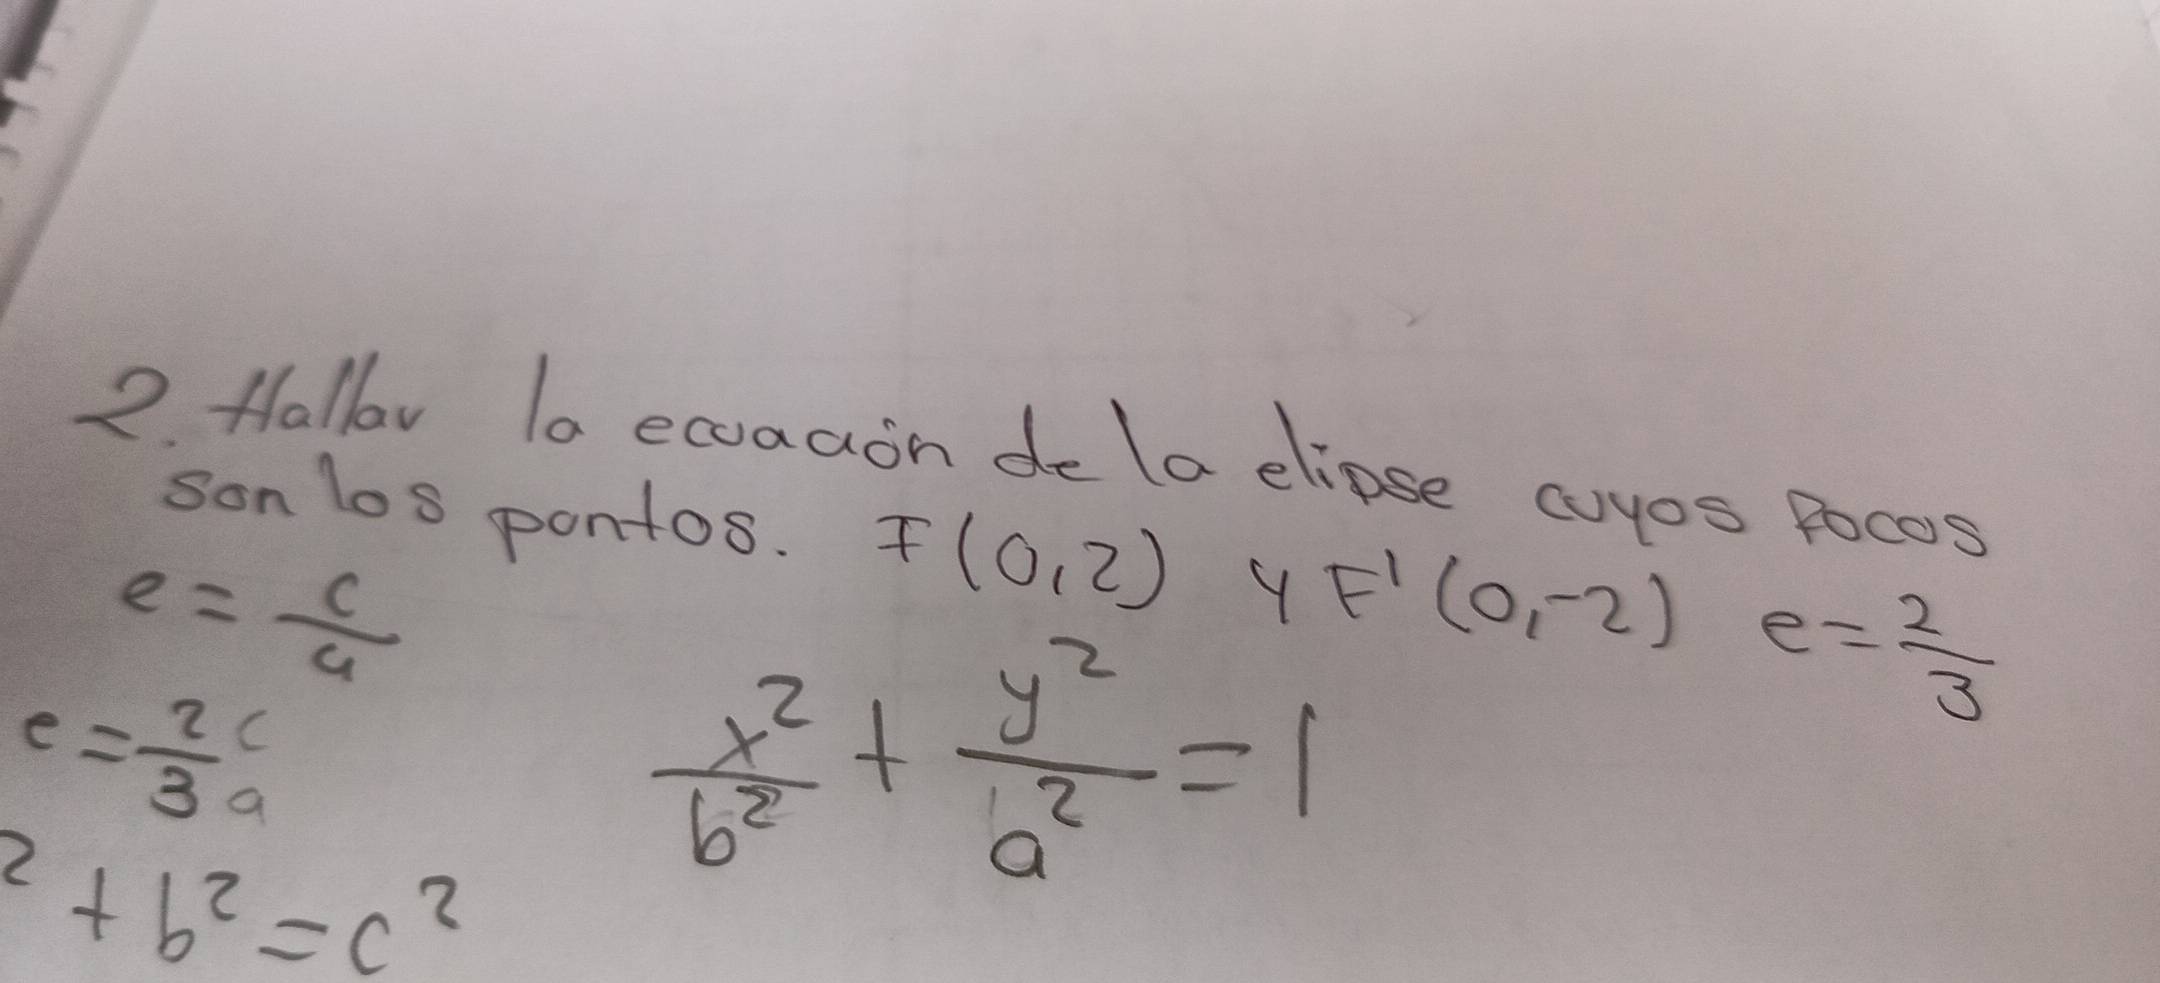 2. Hallar la ecuación de la elipse cuyos focos
son los pontos. F(0,2) y F'(0,-2) e=2/3
e = c/a
e = 2/3 c/a
x²/b² + y²/a² = 1
² + b² = c²